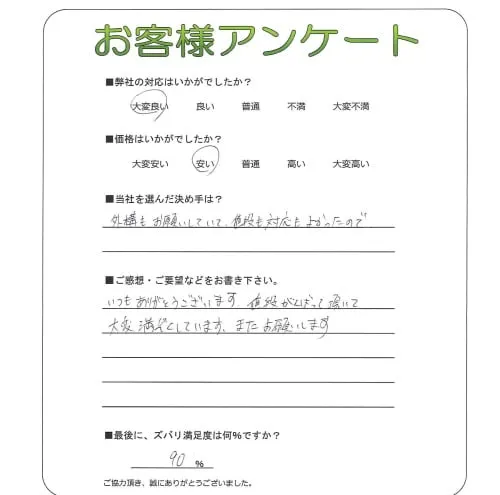 お客様アンケート
■弊社の対応はいかがでしたか?
大変良い 良い 普通 不満 大変不満
■価格はいかがでしたか?
大変安い 安い 普通 高い 大変高い
■当社を選んだ決め手は?
外構もお願いしていて、値段も対応もよかったので
■ご感想・ご要望などをお書き下さい。
いつもありがとうございます。値段がんばって頂いて
大変満足しています。またお願いします
■最後に、ズバリ満足度は何%ですか?
90 %
ご協力頂き、誠にありがとうございました。